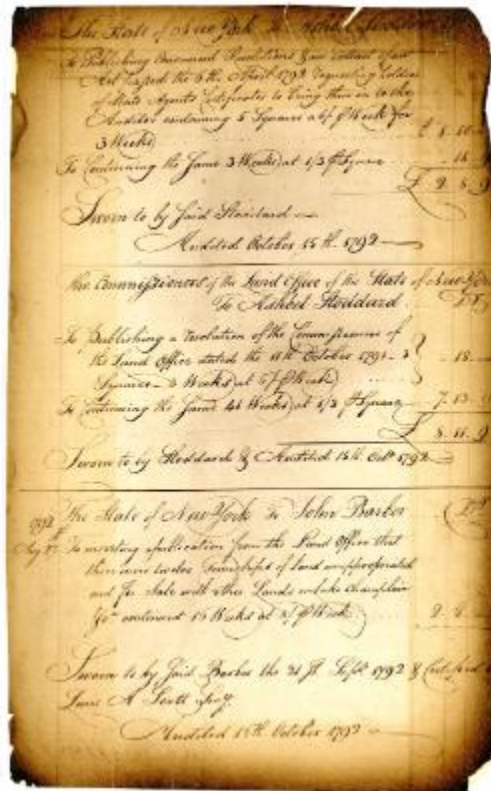 The State of New York To Ashbel Stoddard
To Publishing Concurrent Resolutions & an Extract of an
Act passed the 6th April 1792 requesting Holders
of State Agents Certificates to bring them in to the
Auditor containing 5 Squares at 6/ Week for
3 Weeks
To Continuing the Same 3 Weeks at 1/3 Square
£ 2. 8. 9
Sworn to by said Stoddard
Audited October 15th 1792
The Commissioners of the Land Office of the State of New York
To Ashbel Stoddard
To Publishing a resolution of the Commissioners of
the Land Office dated the October 1791 - 3
Squares - 3 Weeks at Week
To Continuing the Same 41 Weeks at 1/3 Square 7. 13. 9
£ 8. 11. 9
Sworn to by Stoddard & Audited 15th Octr 1792
1792 The State of New York To John Barber
To inserting a publication from the Land Office that
there were twelve Townships of land unappropriated
and for Sale with other Lands on Lake Champlain
continued Weeks at Week
Sworn to by said Barber the 21st Sept 1792 & Certified
Audited 15th October 1792